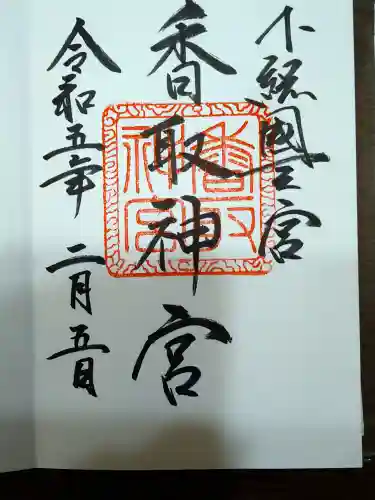 下総國一之宮
香取神宮
香取神宮
令和五年 二月五日